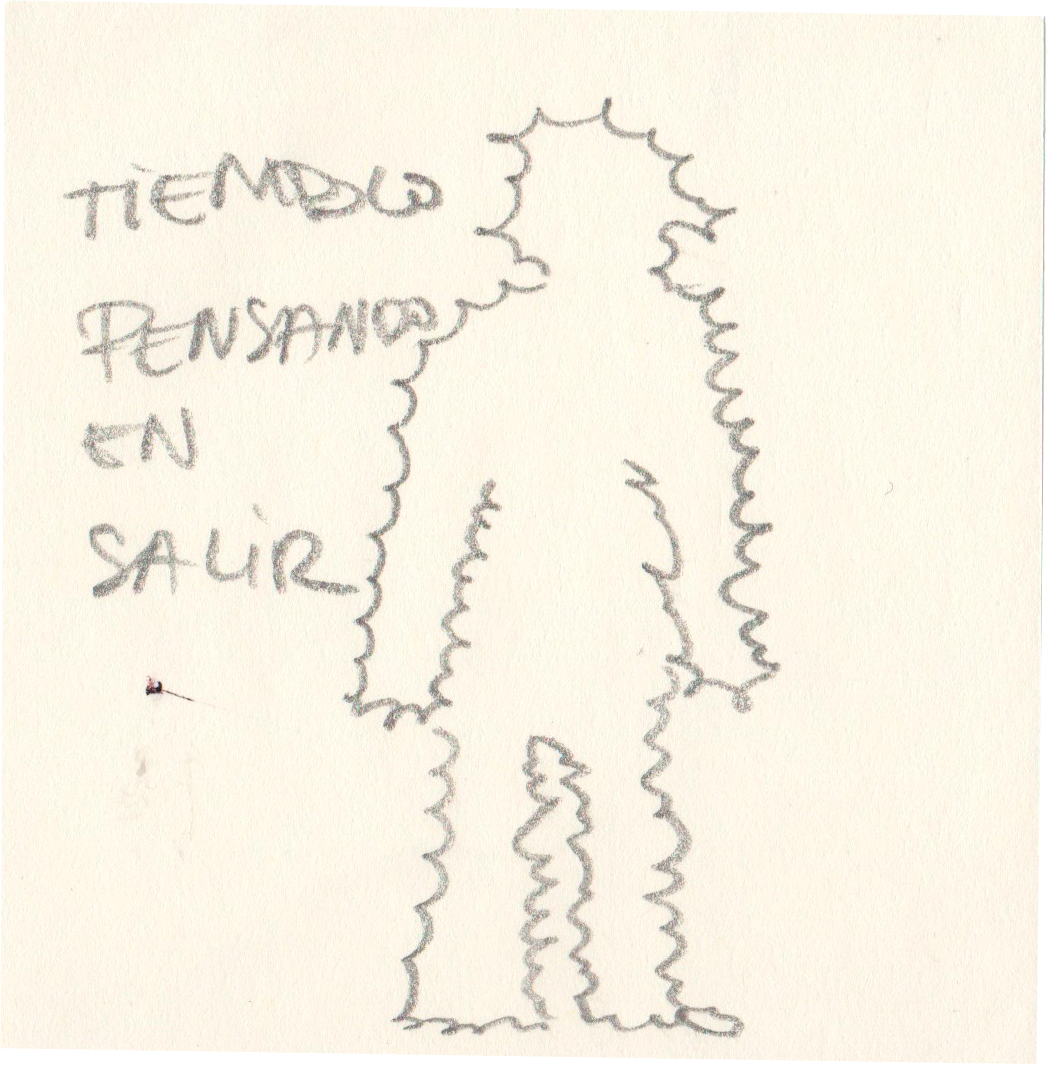 TIEMBLO
PENSANDO
EN
SALIR